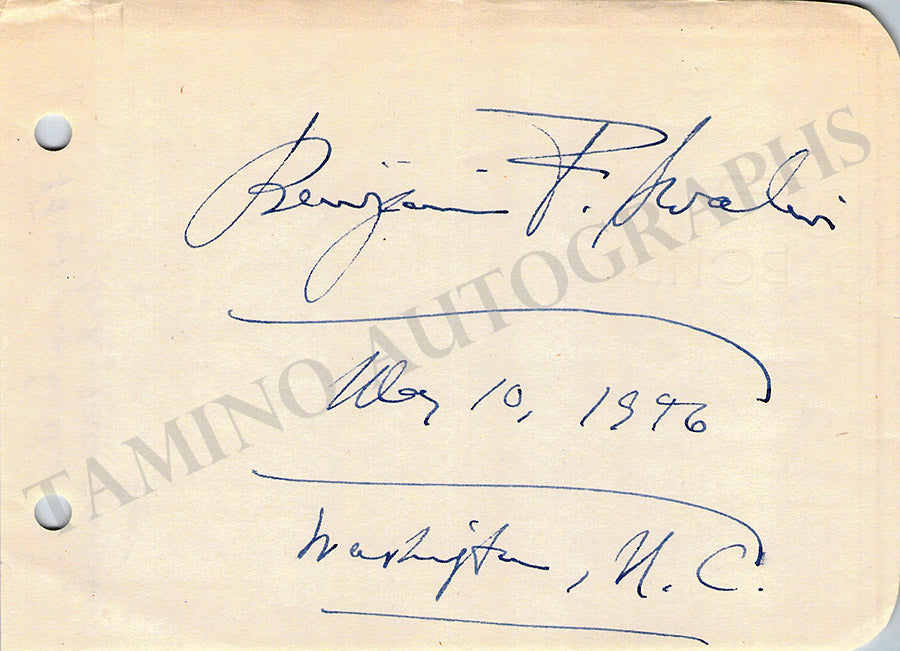 Benjamin F. Swalin
May 10, 1946
Washington, N.C.
TAMINO AUTOGRAPHS